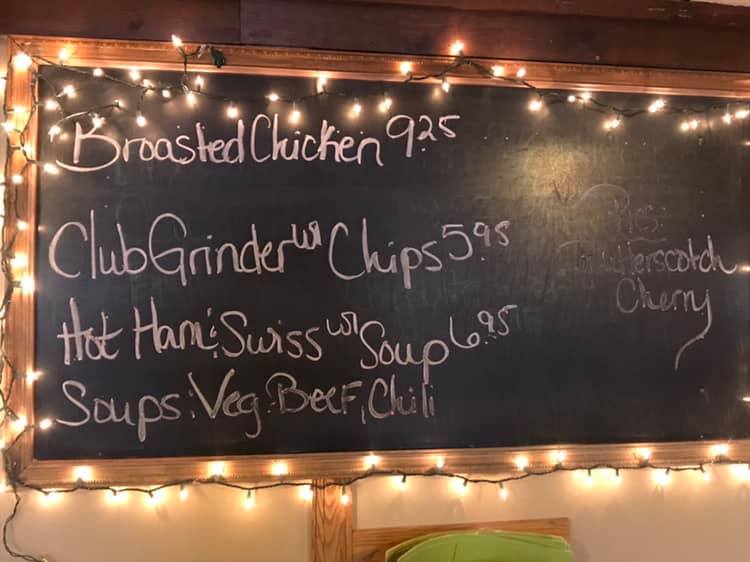 Broasted Chicken 925
Club Grinder w/ Chips 595
Hot Ham & Swiss w/ Soup 695
Soups: Veg. Beef, Chili
Pies:
Butterscotch
Cherry